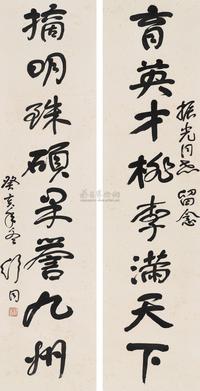 育英才桃李满天下
振光同志留念
摘明珠硕果誉九州
癸亥年冬舒同